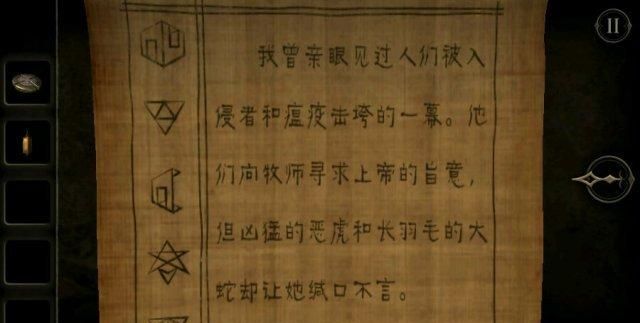 我曾亲眼见过人们被入
侵者和瘟疫击垮的一幕。他
们向牧师寻求上帝的旨意，
但凶猛的恶虎和长羽毛的大
蛇却让她缄口不言。